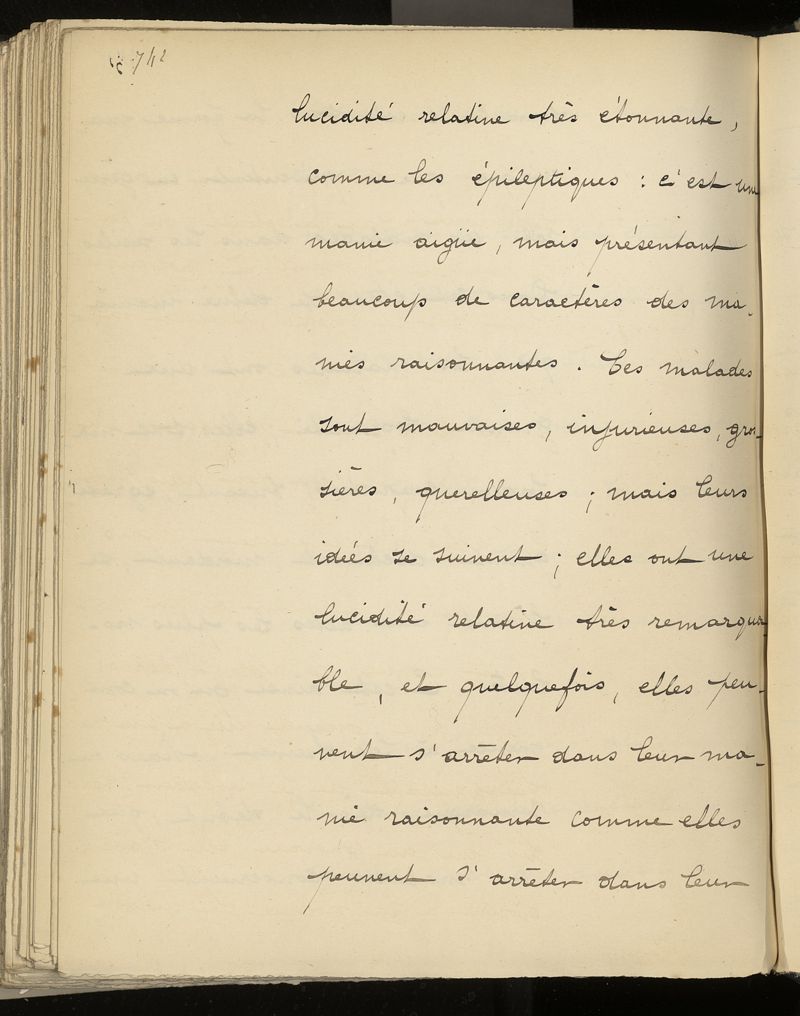 742
lucidité relative très étonnante,
comme les épileptiques : c'est une
manie aigüe, mais présentant
beaucoup de caractères des ma-
nies raisonnantes. Ces malades
sont mauvaises, injurieuses, gros-
sières, querelleuses ; mais leurs
idées se suivent ; elles ont une
lucidité relative très remarqua-
ble, et quelquefois, elles peu-
vent s'arrêter dans leur ma-
nie raisonnante comme elles
peuvent s'arrêter dans leur